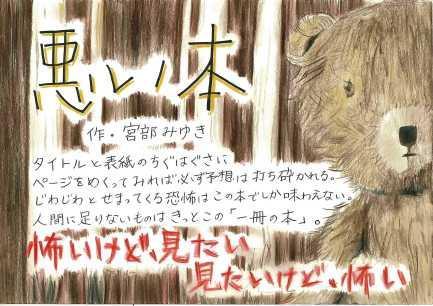 悪い本
作・宮部みゆき
タイトルと表紙のちぐはぐさに
ページをめくってみれば必ず予想は打ち砕かれる。
じわじわとせまってくる恐怖はこの本でしか味わえない。
人間に足りないものはきっとこの「一冊の本」。
怖いけど、見たい
見たいけど、怖い